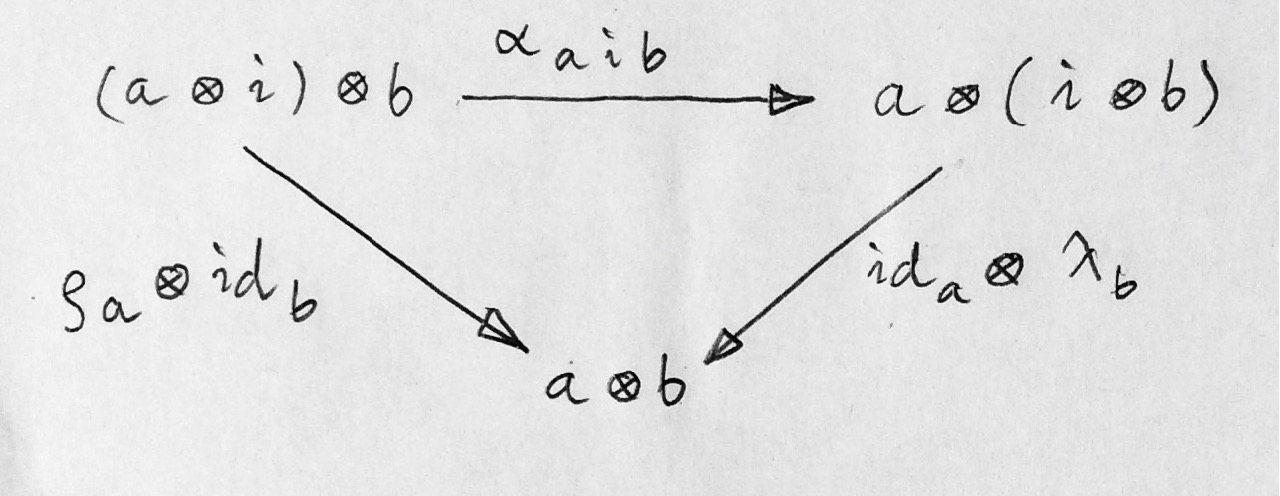 α a i b
(a ⊗ i) ⊗ b
a ⊗ (i ⊗ b)
ρa ⊗ id b
id a ⊗ λ b
a ⊗ b